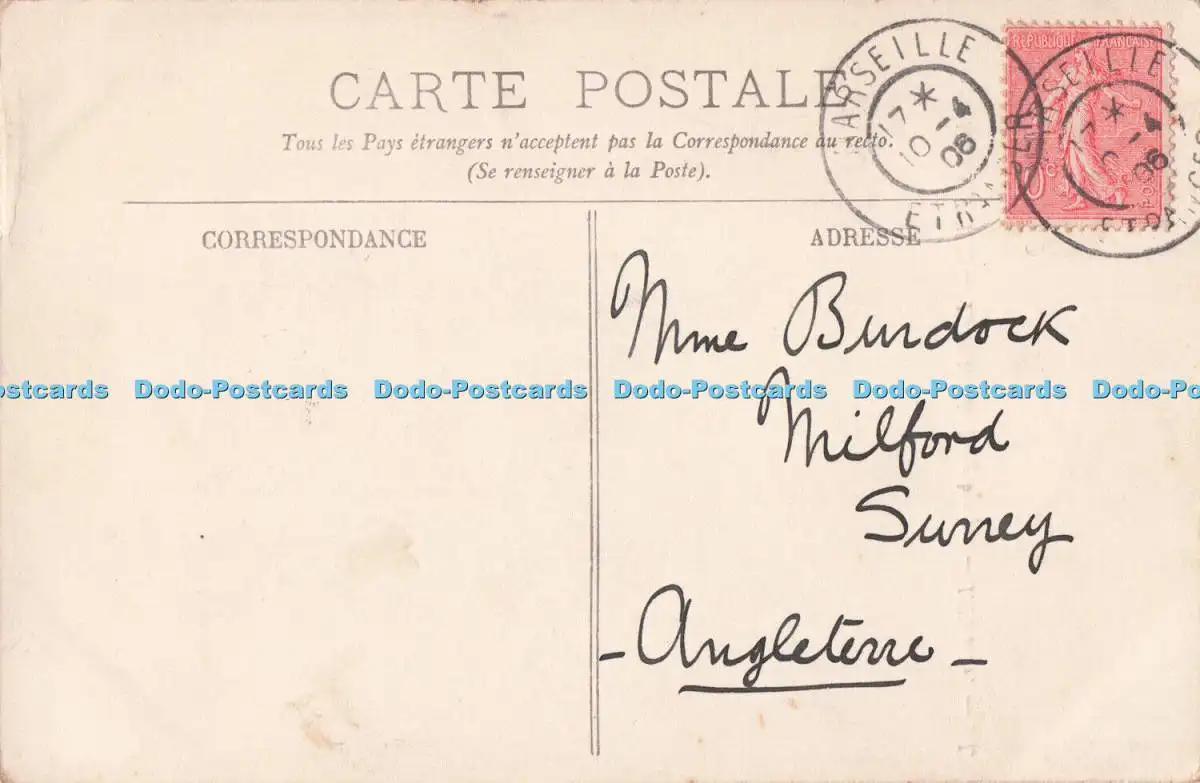 CARTE POSTALE
Tous les Pays étrangers n'acceptent pas la Correspondance au recto.
(Se renseigner à la Poste).
MARSEILLE
17 * 
10 - 4
06
ETRANGER
REPUBLIQUE FRANÇAISE
MARSEILLE
17 *
- 4
06
ETRANGER
CORRESPONDANCE
ADRESSE
Mme Burdock
Milford
Surrey
- Angleterre -
Dodo-Postcards Dodo-Postcards Dodo-Postcards Dodo-Postcards